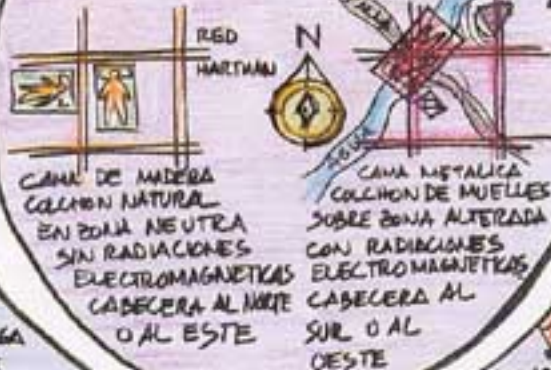 RED
HARTMAN
N
AGUA
CAMA DE MADERA
COLCHON NATURAL
EN ZONA NEUTRA
SIN RADIACIONES
ELECTROMAGNETICAS
CABECERA AL NORTE
O AL ESTE
CAMA METALICA
COLCHON DE MUELLES
SOBRE ZONA ALTERADA
CON RADIACIONES
ELECTROMAGNETICAS
CABECERA AL
SUR O AL
OESTE